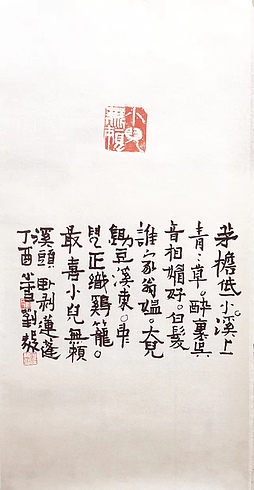 小兒無賴
茅檐低小。溪上
青青草。醉裏吳
音相媚好。白髮
誰家翁媼。大兒
鋤豆溪東。中
兒正織鷄籠。
最喜小兒無賴
溪頭卧剥蓮蓬
丁酉 小雪 劉